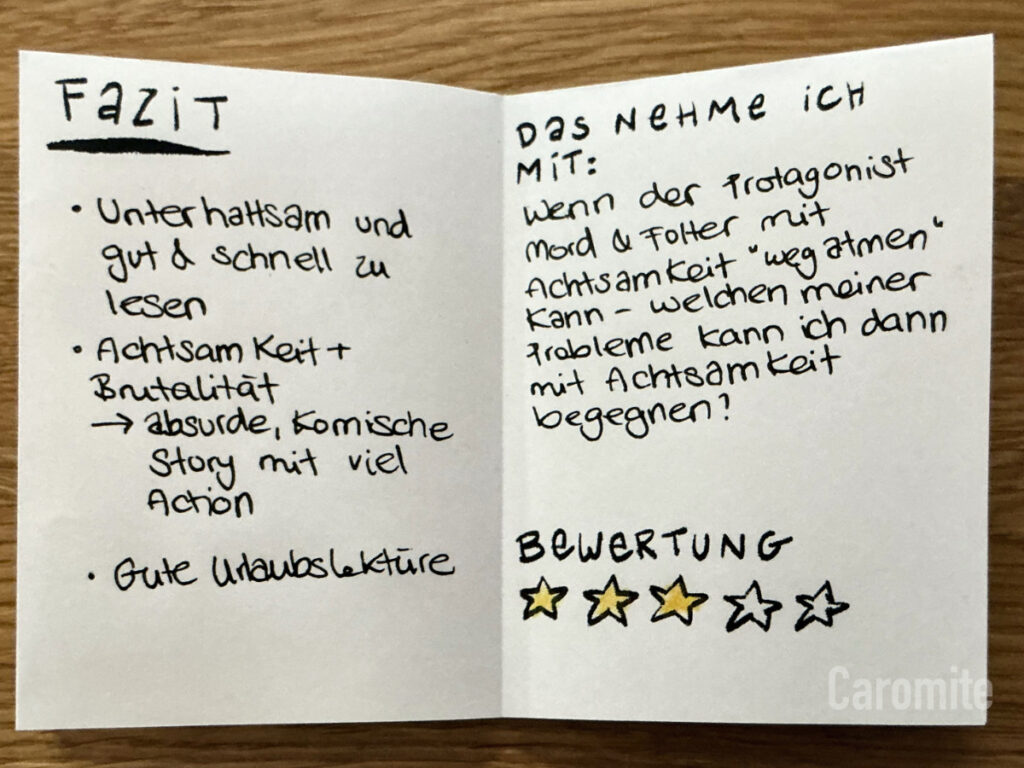 Fazit
• Unterhaltsam und
gut & schnell zu
lesen
• Achtsamkeit +
Brutalität
→ absurde, komische
Story mit viel
Action
• Gute Urlaubslektüre
Das nehme ich
mit:
Wenn der Protagonist
Mord & Folter mit
Achtsamkeit "weg atmen"
kann – welchen meiner
Probleme kann ich dann
mit Achtsamkeit
begegnen?
Bewertung
Caromite